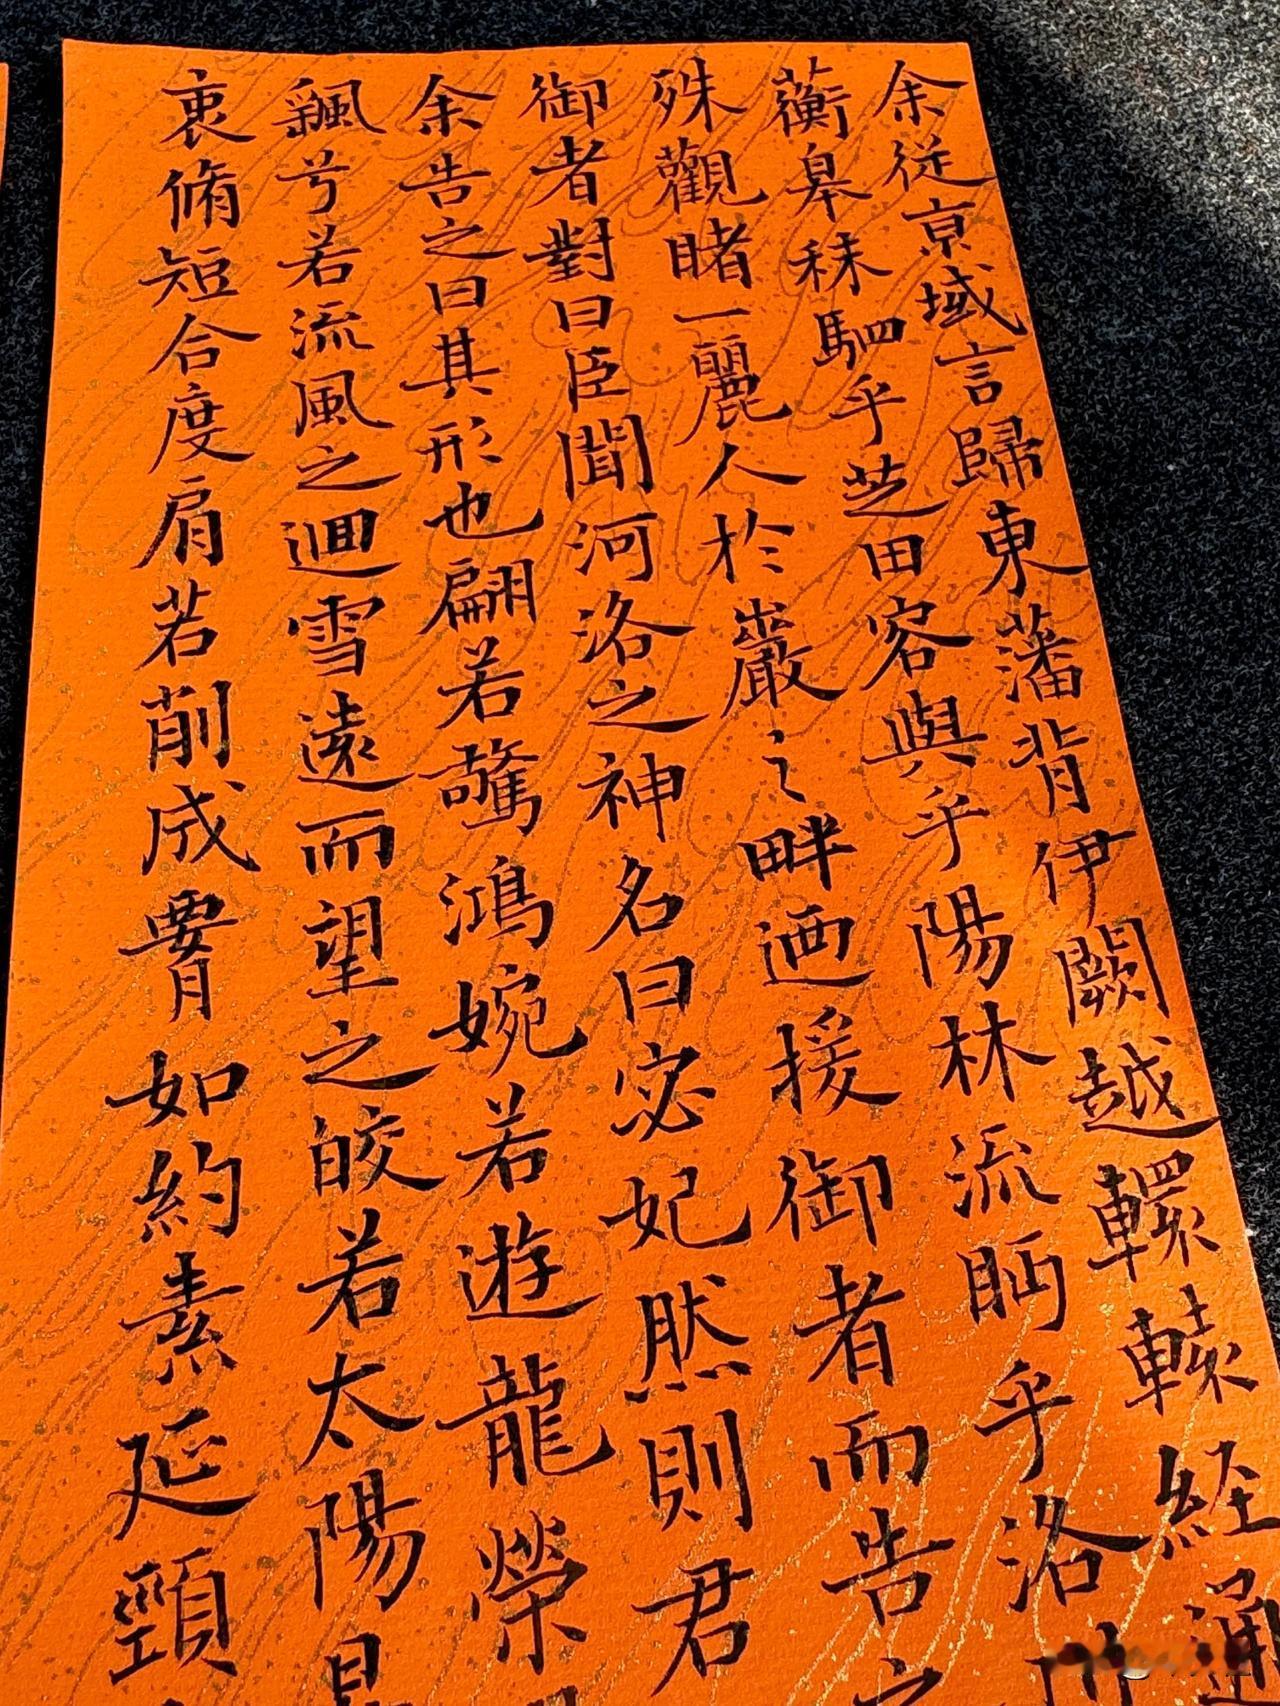 余従京域言歸東藩背伊闕越轘轅経通
蘅皋秣駟乎芝田容與乎陽林流眄乎洛
殊觀睹一麗人於巖之畔迺援御者而告之
御者對曰臣聞河洛之神名曰宓妃然則君
余告之曰其形也翩若驚鴻婉若遊龍榮
飄兮若流風之迴雪遠而望之皎若太陽
衷脩短合度肩若削成霄如約素延頸